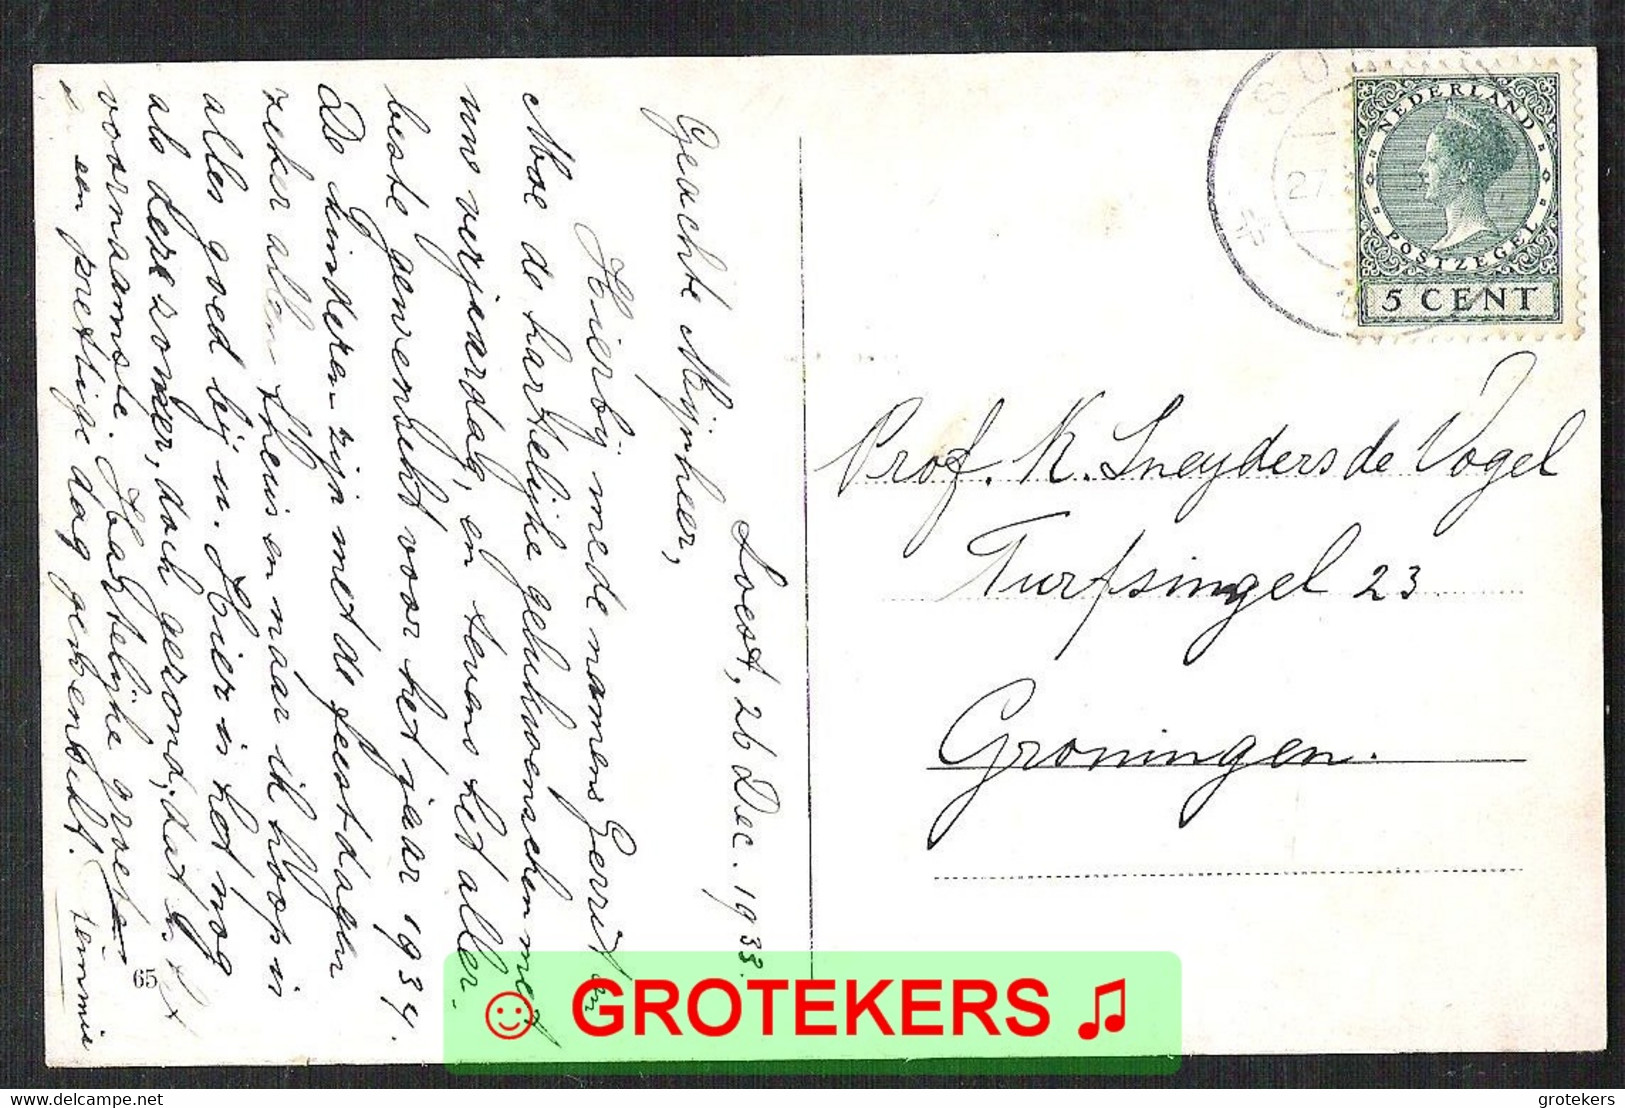 Soest, 26 Dec. 1933.
Geachte Mijnheer,
Hierbij mede namens Gerrit en
Moe de hartelijke gelukwenschen met
uw verjaardag, en tevens het aller-
beste gewenscht voor het jaar 1934.
De kinderen zijn met de feestdagen
zeker allen thuis en naar ik hoop is
alles goed bij u. Hier is het nog
als dezen zomer, doch gezond, dat is het
voornaamste. Hartelijke groeten
en een prettige dag gewenscht. Jimmie
65
SOEST
27
NEDERLAND
POSTZEGEL
5 CENT
Prof. K. Sneyders de Vogel
Turfsingel 23
Groningen.
☺ GROTEKERS ♫
delcampe.net
grotekers